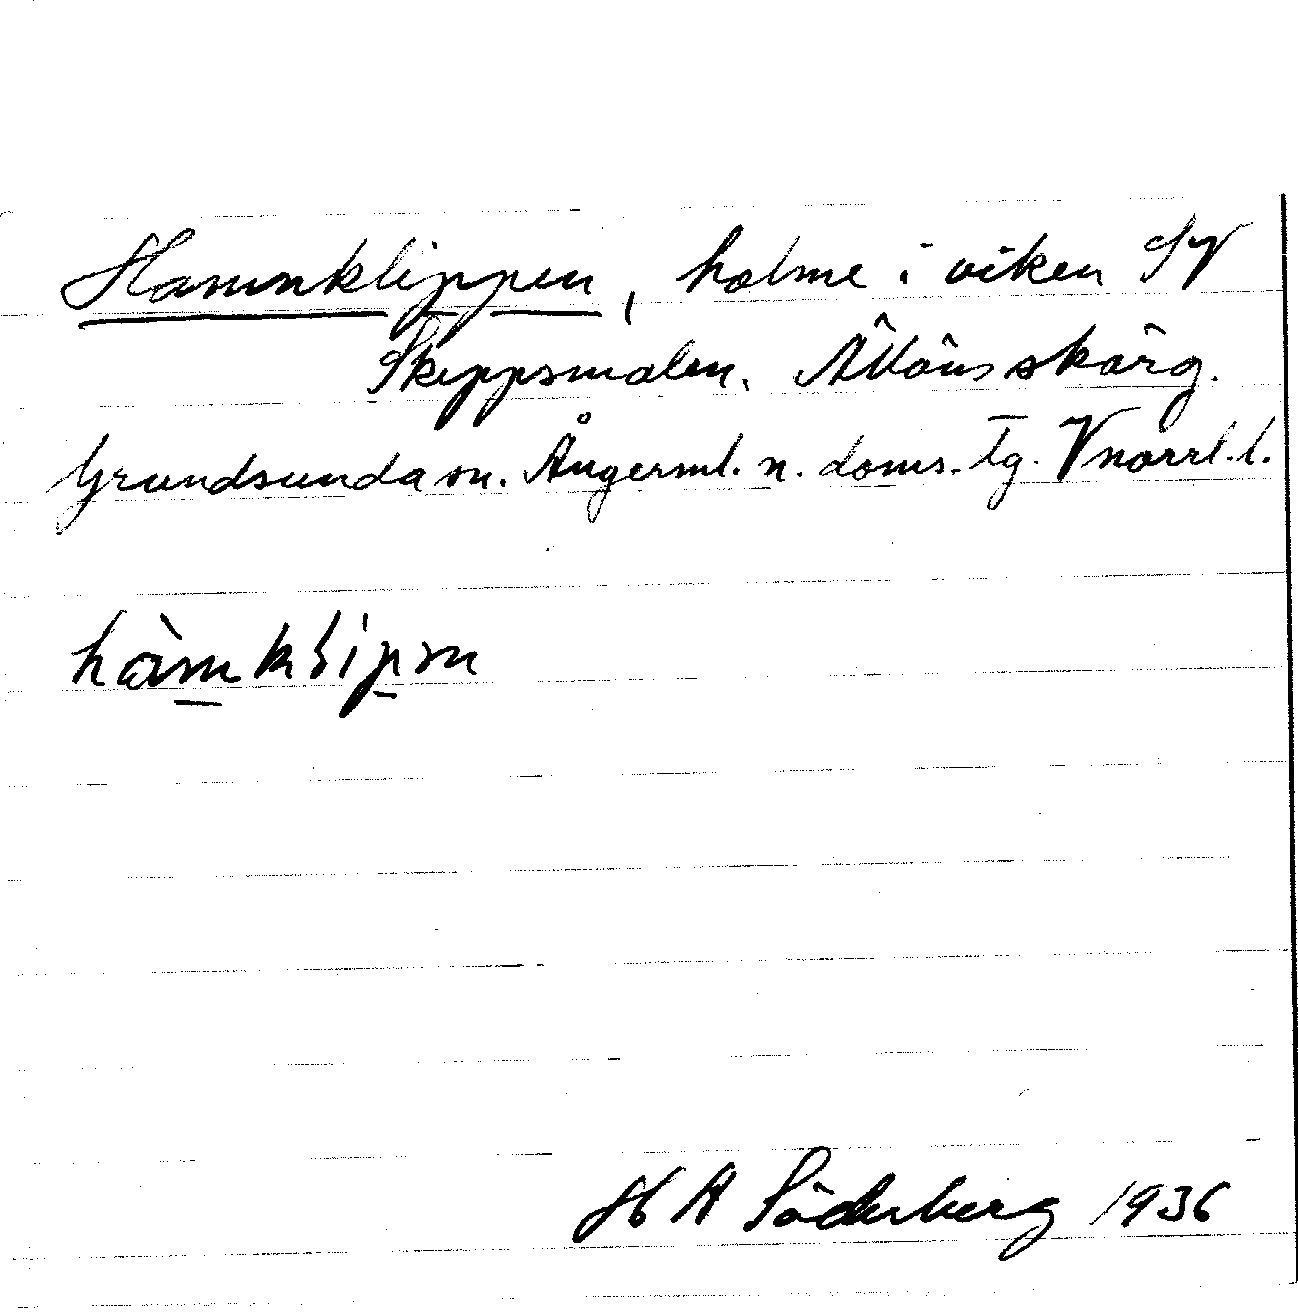 Hamnklippen, holme i viken SV
Skeppsmalen. skärg.
Grundsunda sn. Ångerml. n. doms. tg. Vnorrl. l.
H A Söderberg 1936